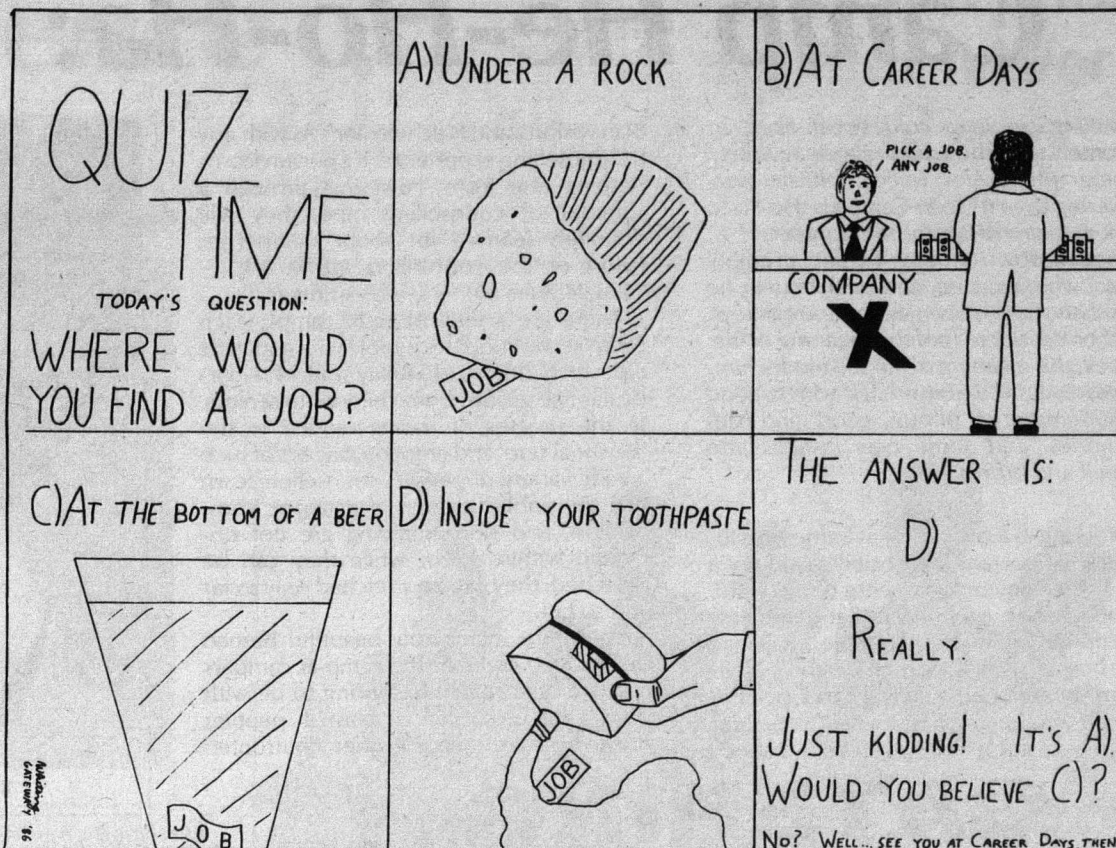 QUIZ
TIME
TODAY'S QUESTION:
WHERE WOULD
YOU FIND A JOB?
A) UNDER A ROCK
JOB
B) AT CAREER DAYS
PICK A JOB.
ANY JOB.
COMPANY
X
C) AT THE BOTTOM OF A BEER
JOB
GATEWAY '86
D) INSIDE YOUR TOOTHPASTE
JOB
THE ANSWER IS:
D)
REALLY.
JUST KIDDING! IT'S A).
WOULD YOU BELIEVE C)?
NO? WELL... SEE YOU AT CAREER DAYS THEN